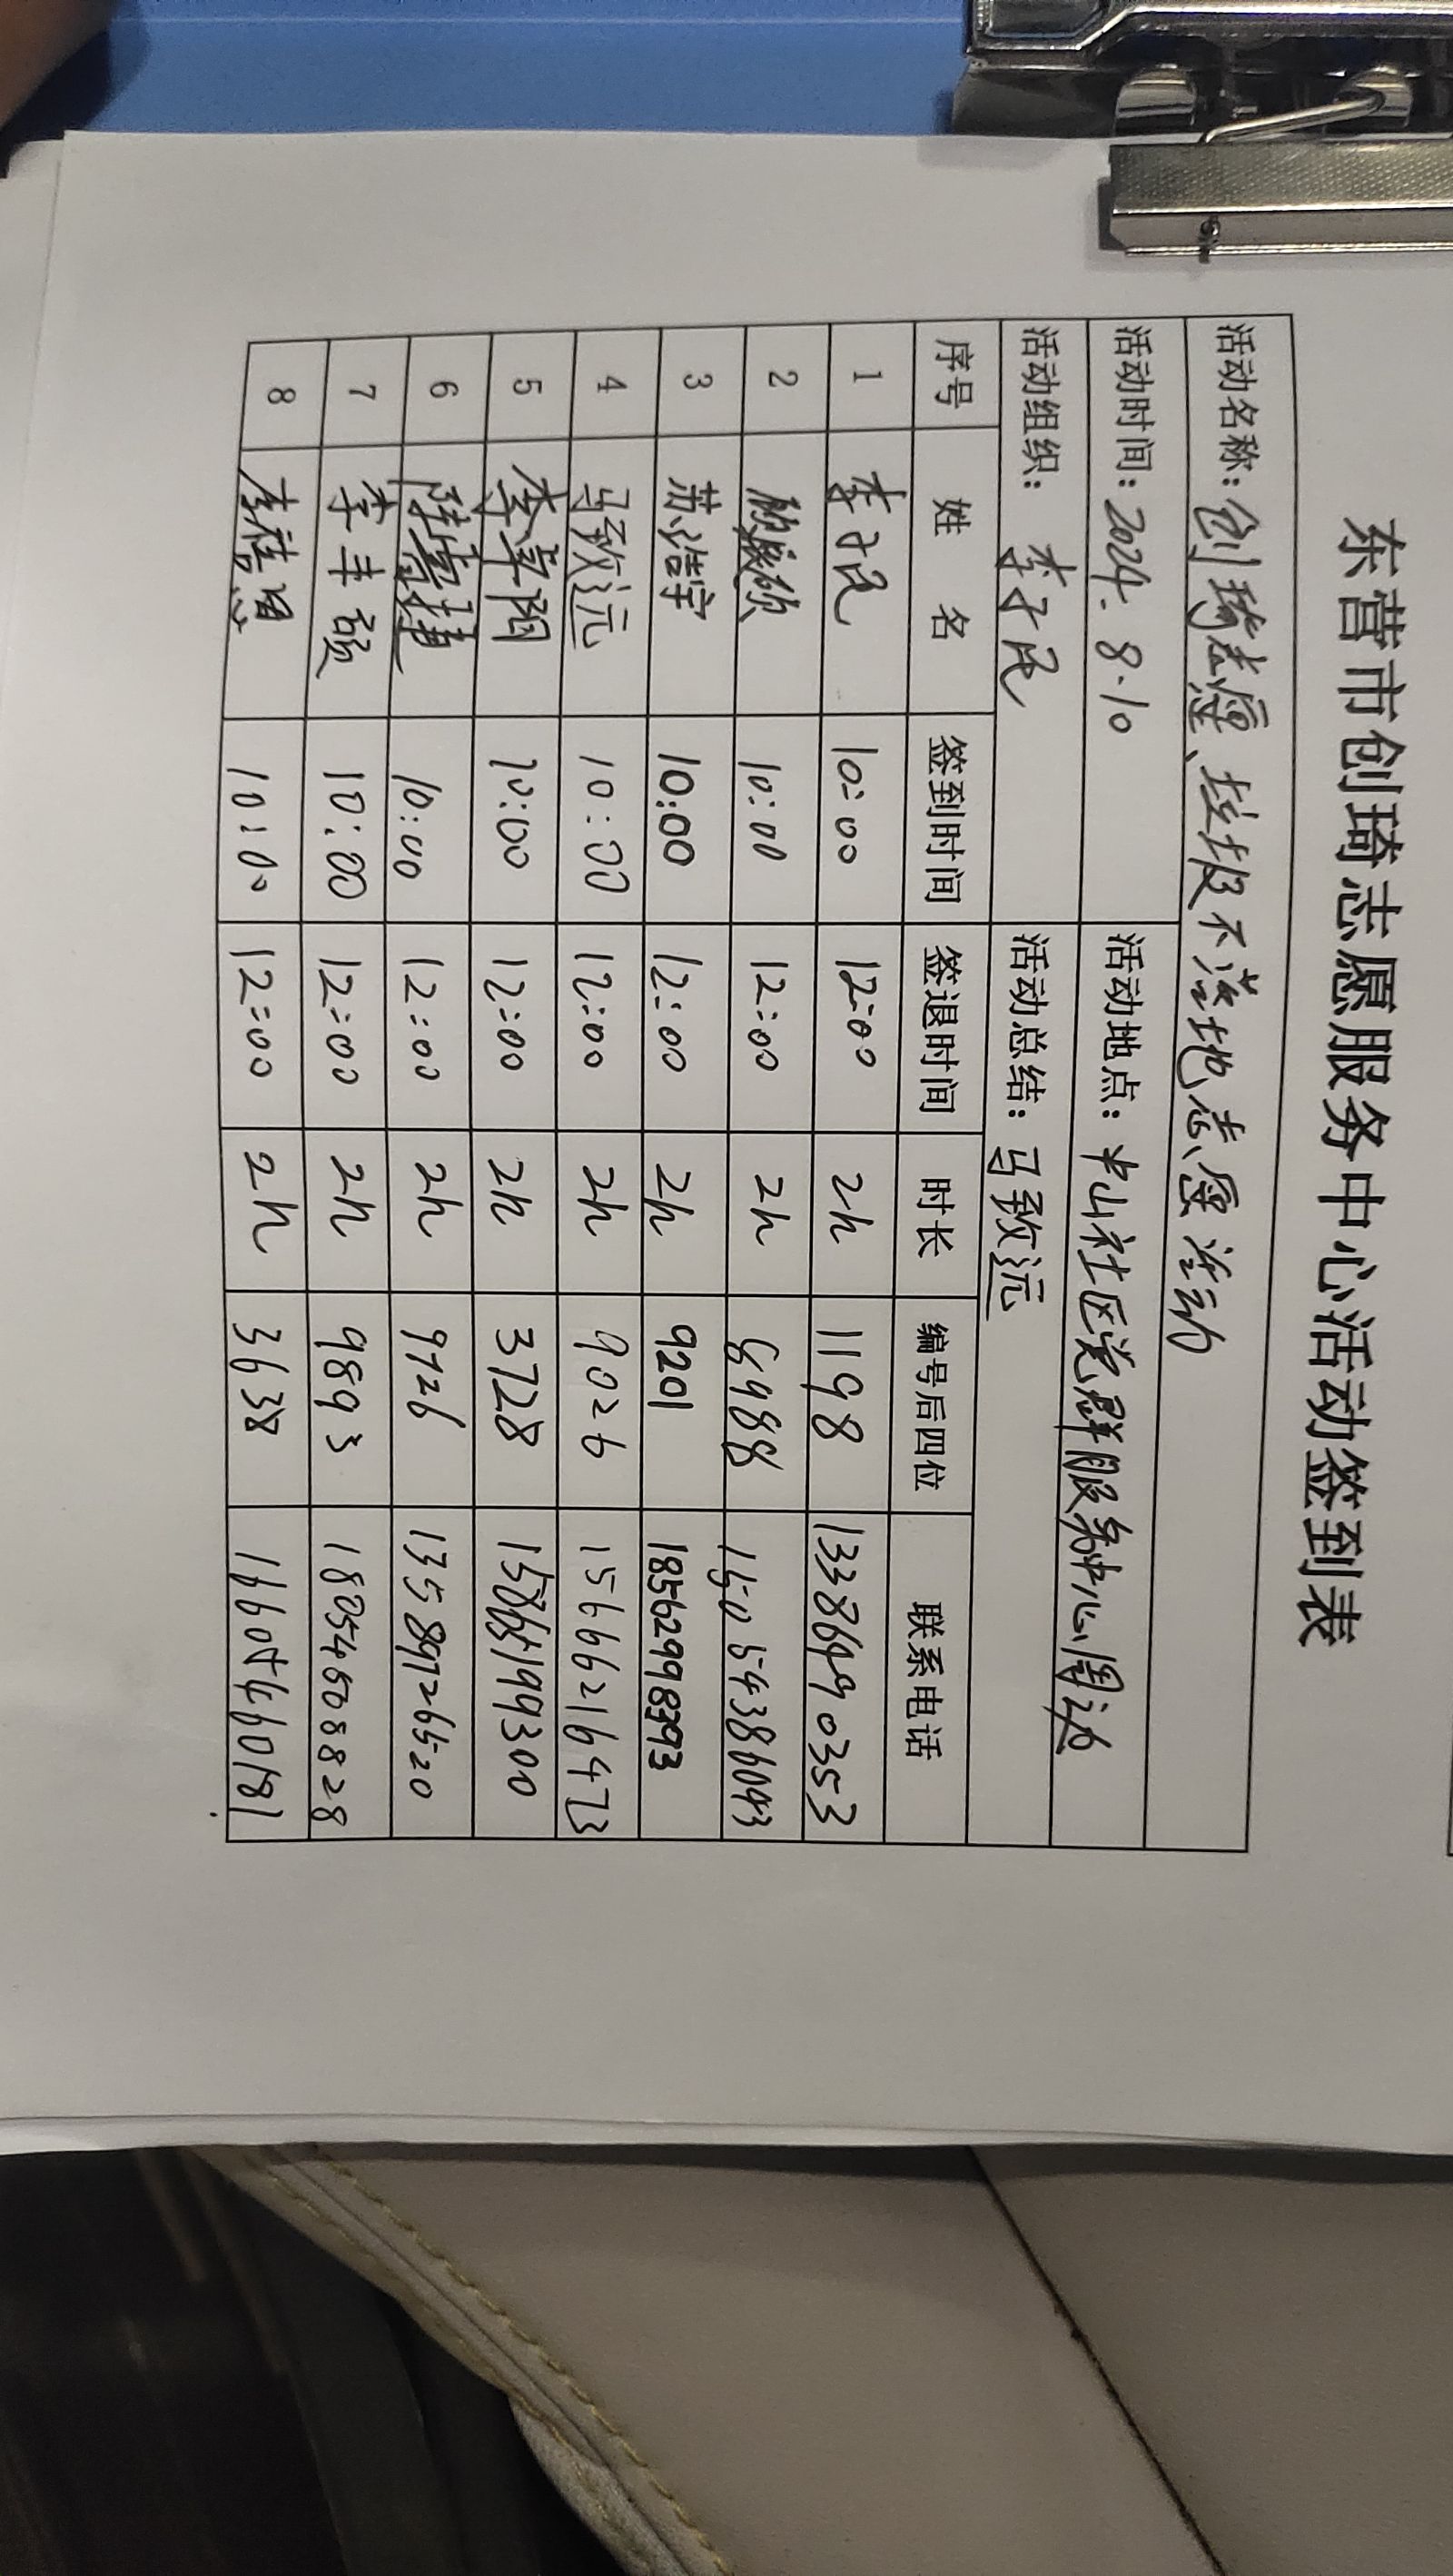 东营市创琦志愿服务中心活动签到表
活动名称：创琦志愿、垃圾不落地志愿活动
活动时间：2024.8.10 活动地点：中山社区党群服务中心周边
活动组织：李子民 活动总结：马致远
序号 姓名 签到时间 签退时间 时长 编号后四位 联系电话
1 李子民 10:00 12:00 2h 1198 13386490353
2 10:00 12:00 2h 15054386093
3 苏浩宇 10:00 12:00 2h 9201 18562998393
4 马致远 10:00 12:00 2h 9026 15666216473
5 李卓阳 10:00 12:00 2h 3728
6 10:00 12:00 2h 9726 13589726520
7 李丰硕 10:00 12:00 2h 9893 18054608828
8 10:00 12:00 2h 3638